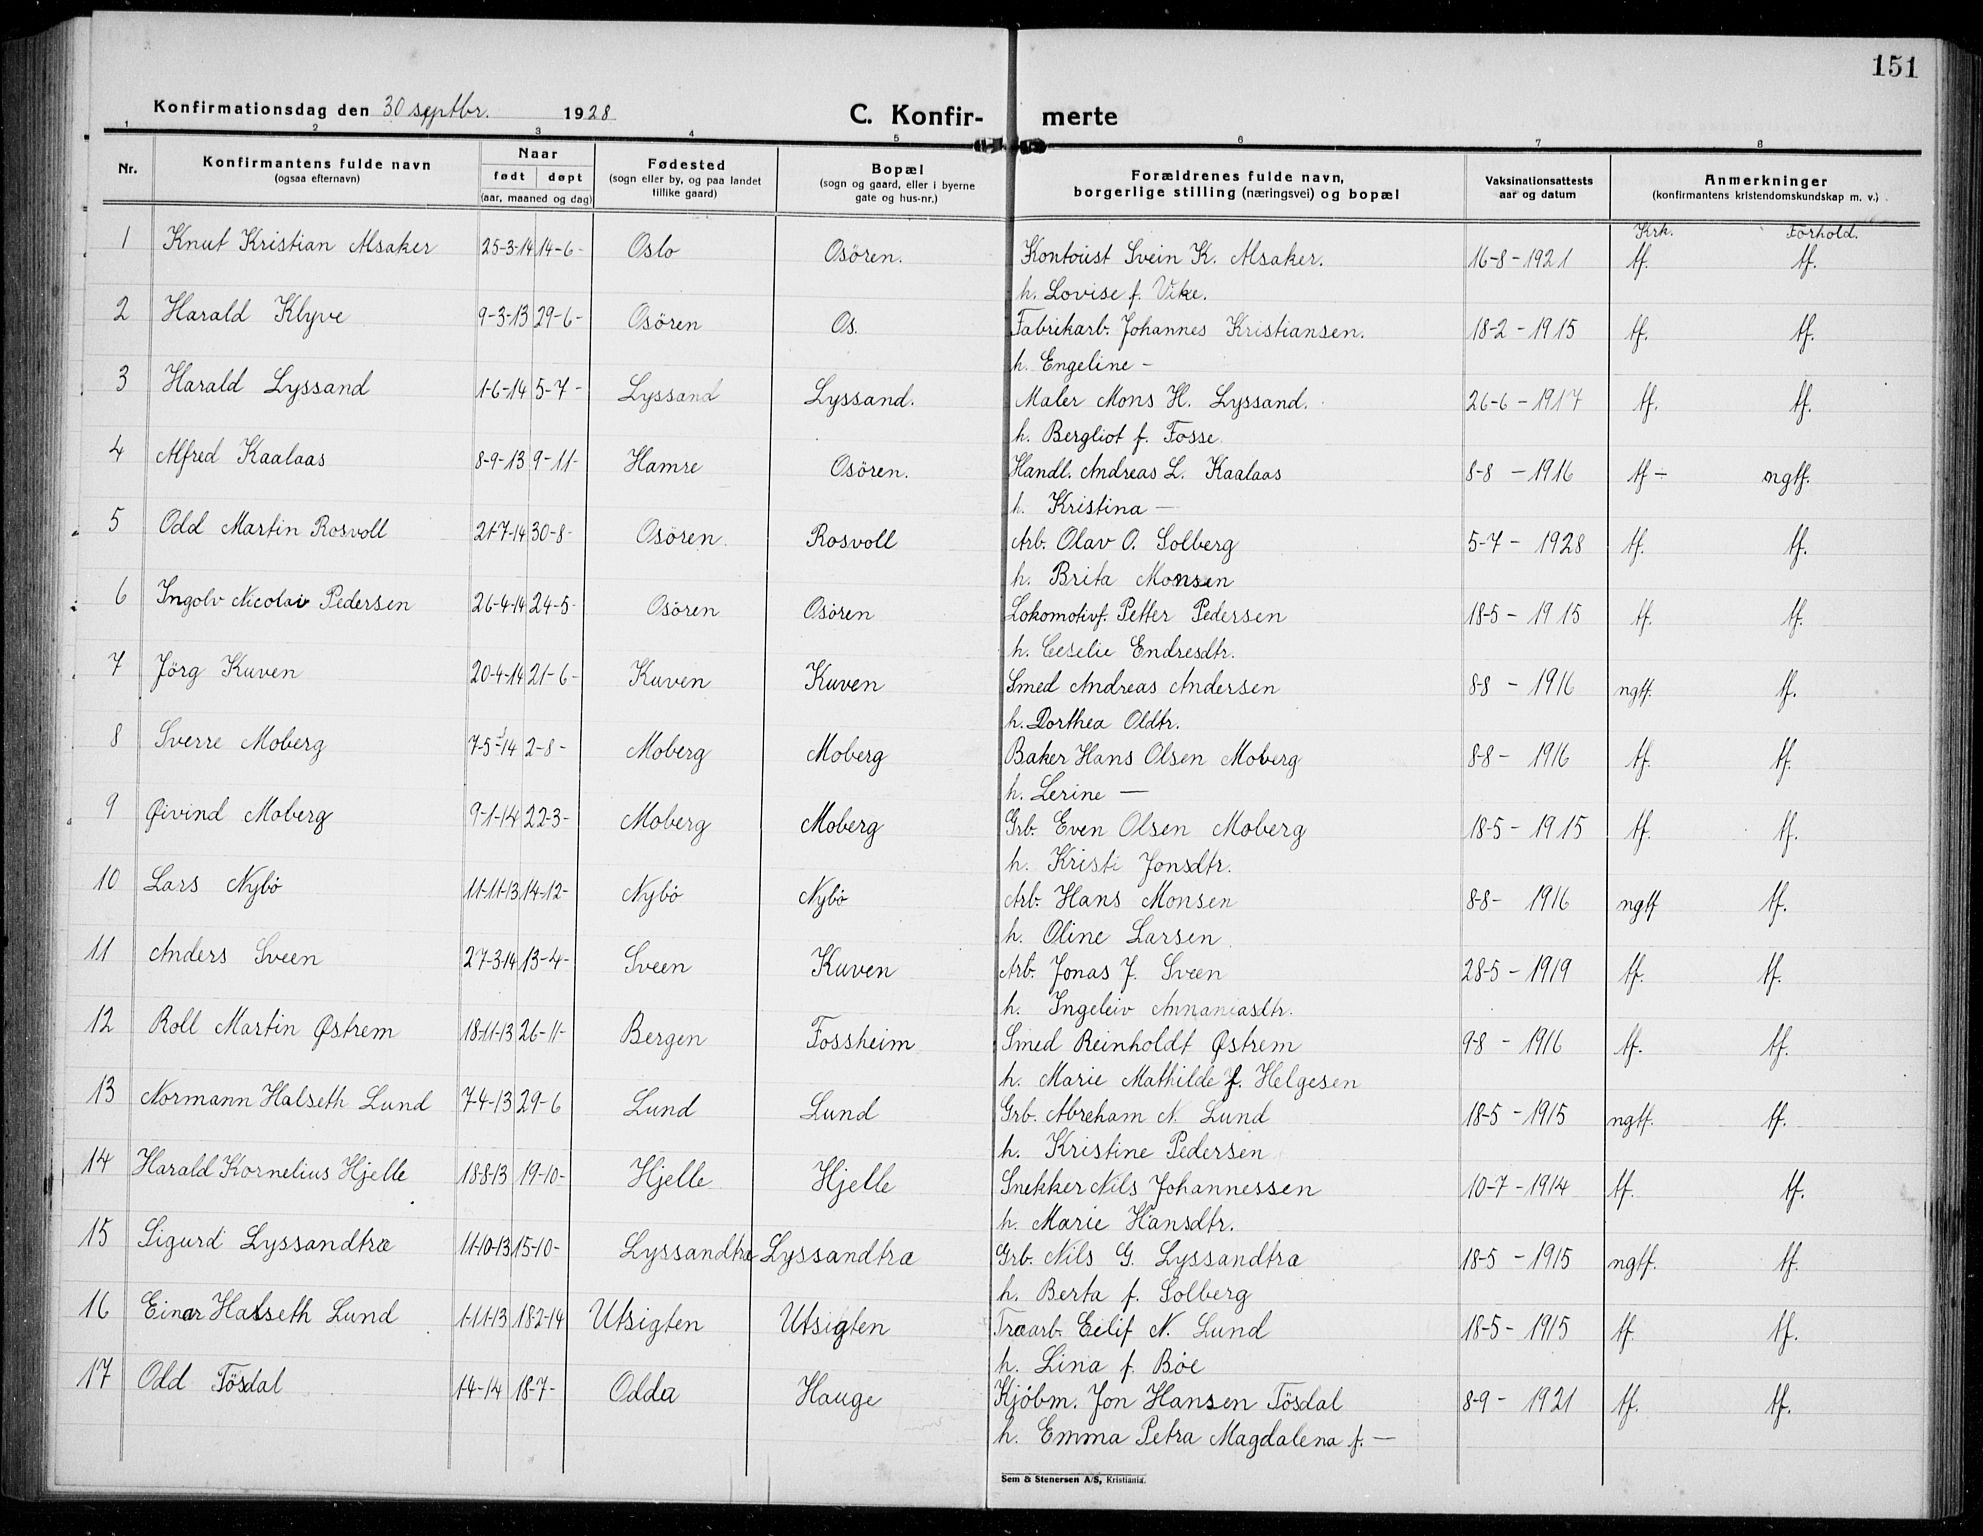 151
Konfirmationsdag den 30 septbr. 1928 C. Konfir- merte
1 2 3 4 5 6 7 8
Nr. Konfirmantens fulde navn (ogsaa efternavn) Naar født døpt (aar, maaned og dag) Fødested (sogn eller by, og paa landet tillike gaard) Bopæl (sogn og gaard, eller i byerne gate og hus-nr.) Forældrenes fulde navn, borgerlige stilling (næringsvei) og bopæl Vaksinationsattests aar og datum Anmerkninger (konfirmantens kristendomskundskap m. v.)
Krk. Forhold.
1 Knut Kristian Alsaker 25-3-14 14-6- Oslo Osören. Kontorist Svein K. Alsaker. 16-8-1921 tf. tf.
h. Lovise f. Vike.
2 Harald Klyve 9-3-13 29-6- Osören Os. Fabrikarb. Johannes Kristiansen. 18-2-1915 tf. tf.
h. Engeline -
3 Harald Lyssand 1-6-14 5-7- Lyssand Lyssand. Maler Mons H. Lyssand. 26-6-1917 tf. tf.
h. Bergliot f. Fosse.
4 Alfred Kaalaas 8-9-13 9-11- Hamre Osören. Handl. Andreas L. Kaalaas 8-8-1916 tf- mgtf.
h. Kristina -
5 Odd Martin Rosvoll 21-7-14 30-8- Osören. Rosvoll Arb. Olav O. Solberg 5-7-1928 tf. tf.
h. Brita Monsen
6 Ingolv Nicolai Pedersen 26-4-14 24-5- Osören Osören Lokomotivf. Petter Pedersen 18-5-1915 tf. tf.
h. Ceselie Endresdtr.
7 Jörg Kuven 20-4-14 21-6- Kuven Kuven Smed Andreas Andersen 8-8-1916 ngtf. tf.
h. Dorthea Oldtr.
8 Sverre Moberg 7-5-14 2-8- Moberg Moberg Baker Hans Olsen Moberg 8-8-1916 tf. tf.
h. Lerine -
9 Øivind Moberg 9-1-14 22-3- Moberg Moberg Grb. Even Olsen Moberg 18-5-1915 tf. tf.
h. Kristi Jonsdtr.
10 Lars Nybø 11-11-13 14-12- Nybø Nybø Arb. Hans Monsen 8-8-1916 ngtf tf.
h. Oline Larsen
11 Anders Sveen 27-3-14 13-4- Sveen Kuven Arb. Jonas J. Sveen 28-5-1919 tf. tf.
h. Ingeleiv Annaniasdtr.
12 Roll Martin Østrem 18-11-13 26-11- Bergen Fossheim Smed Reinholdt Østrem 9-8-1916 tf. tf.
h. Marie Mathilde f. Helgesen
13 Normann Halseth Lund 7-4-13 29-6 Lund Lund Grb. Abreham N. Lund 18-5-1915 ngtf. tf.
h. Kristine Pedersen
14 Harald Kornelius Hjelle 18-8-13 19-10- Hjelle Hjelle Snekker Nils Johannessen 10-7-1914 tf. tf.
h. Marie Hansdtr.
15 Sigurd Lyssandtræ 11-10-13 15-10- Lyssandtræ Lyssandtræ Grb. Nils G. Lyssandtræ 18-5-1915 ngtf. tf.
h. Berta f. Solberg
16 Einar Halseth Lund 1-11-13 18-2-14 Utsigten Utsigten Træarb. Eilif N. Lund 18-5-1915 tf tf.
h. Lina f. Böe
17 Odd Tösdal 1-4-14 18-7- Odda Hauge Kjöbm. Jon Hansen Tösdal 8-9-1921 tf. tf.
h. Emma Petra Magdalena f. -
Sem & Stenersen A/S, Kristiania.